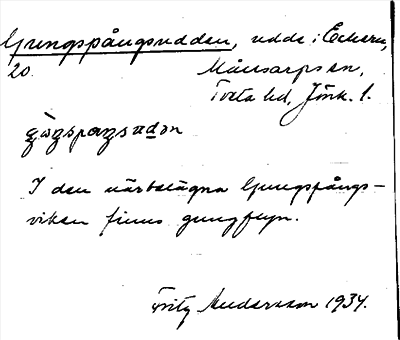 Gungspångsudden, udde i Eckern,
20. Månsarps sn,
Tveta hd, Jönk. l.
I den närbelägna Gungspångs-
viken finns gungflyn.
Fritz Andersson 1934.